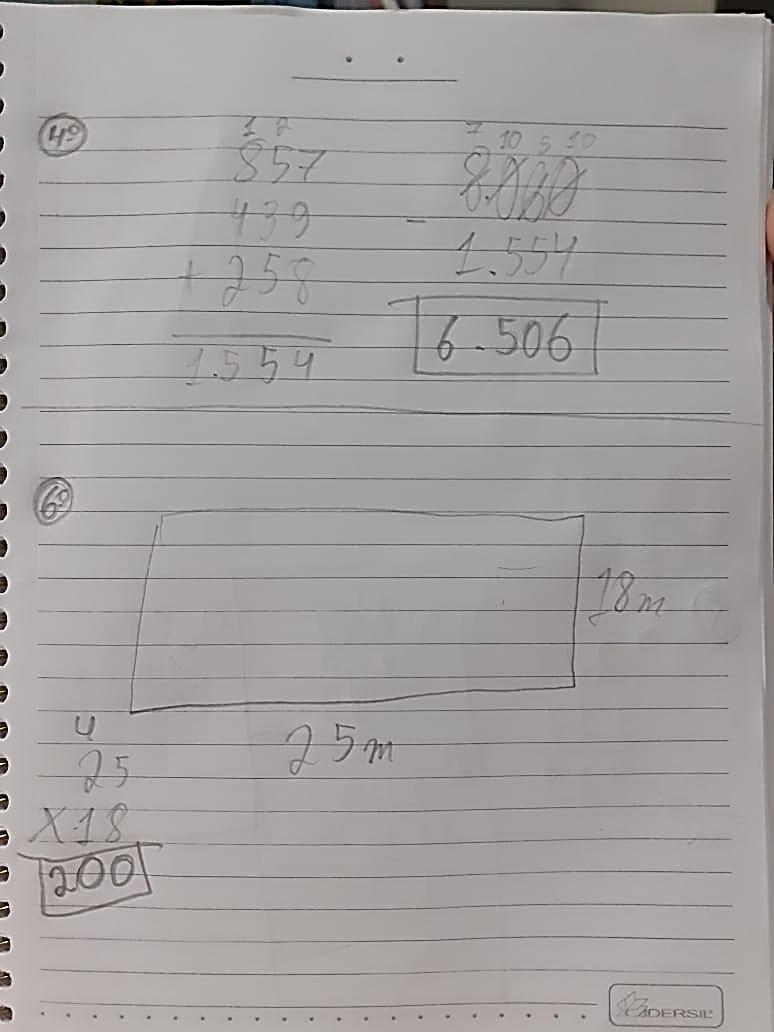 4º
1 2
857
439
+ 258
1.554
7 10 5 10
8.060
- 1.554
6.506
6º
18m
25m
4
25
X 18
200
CADERSIL